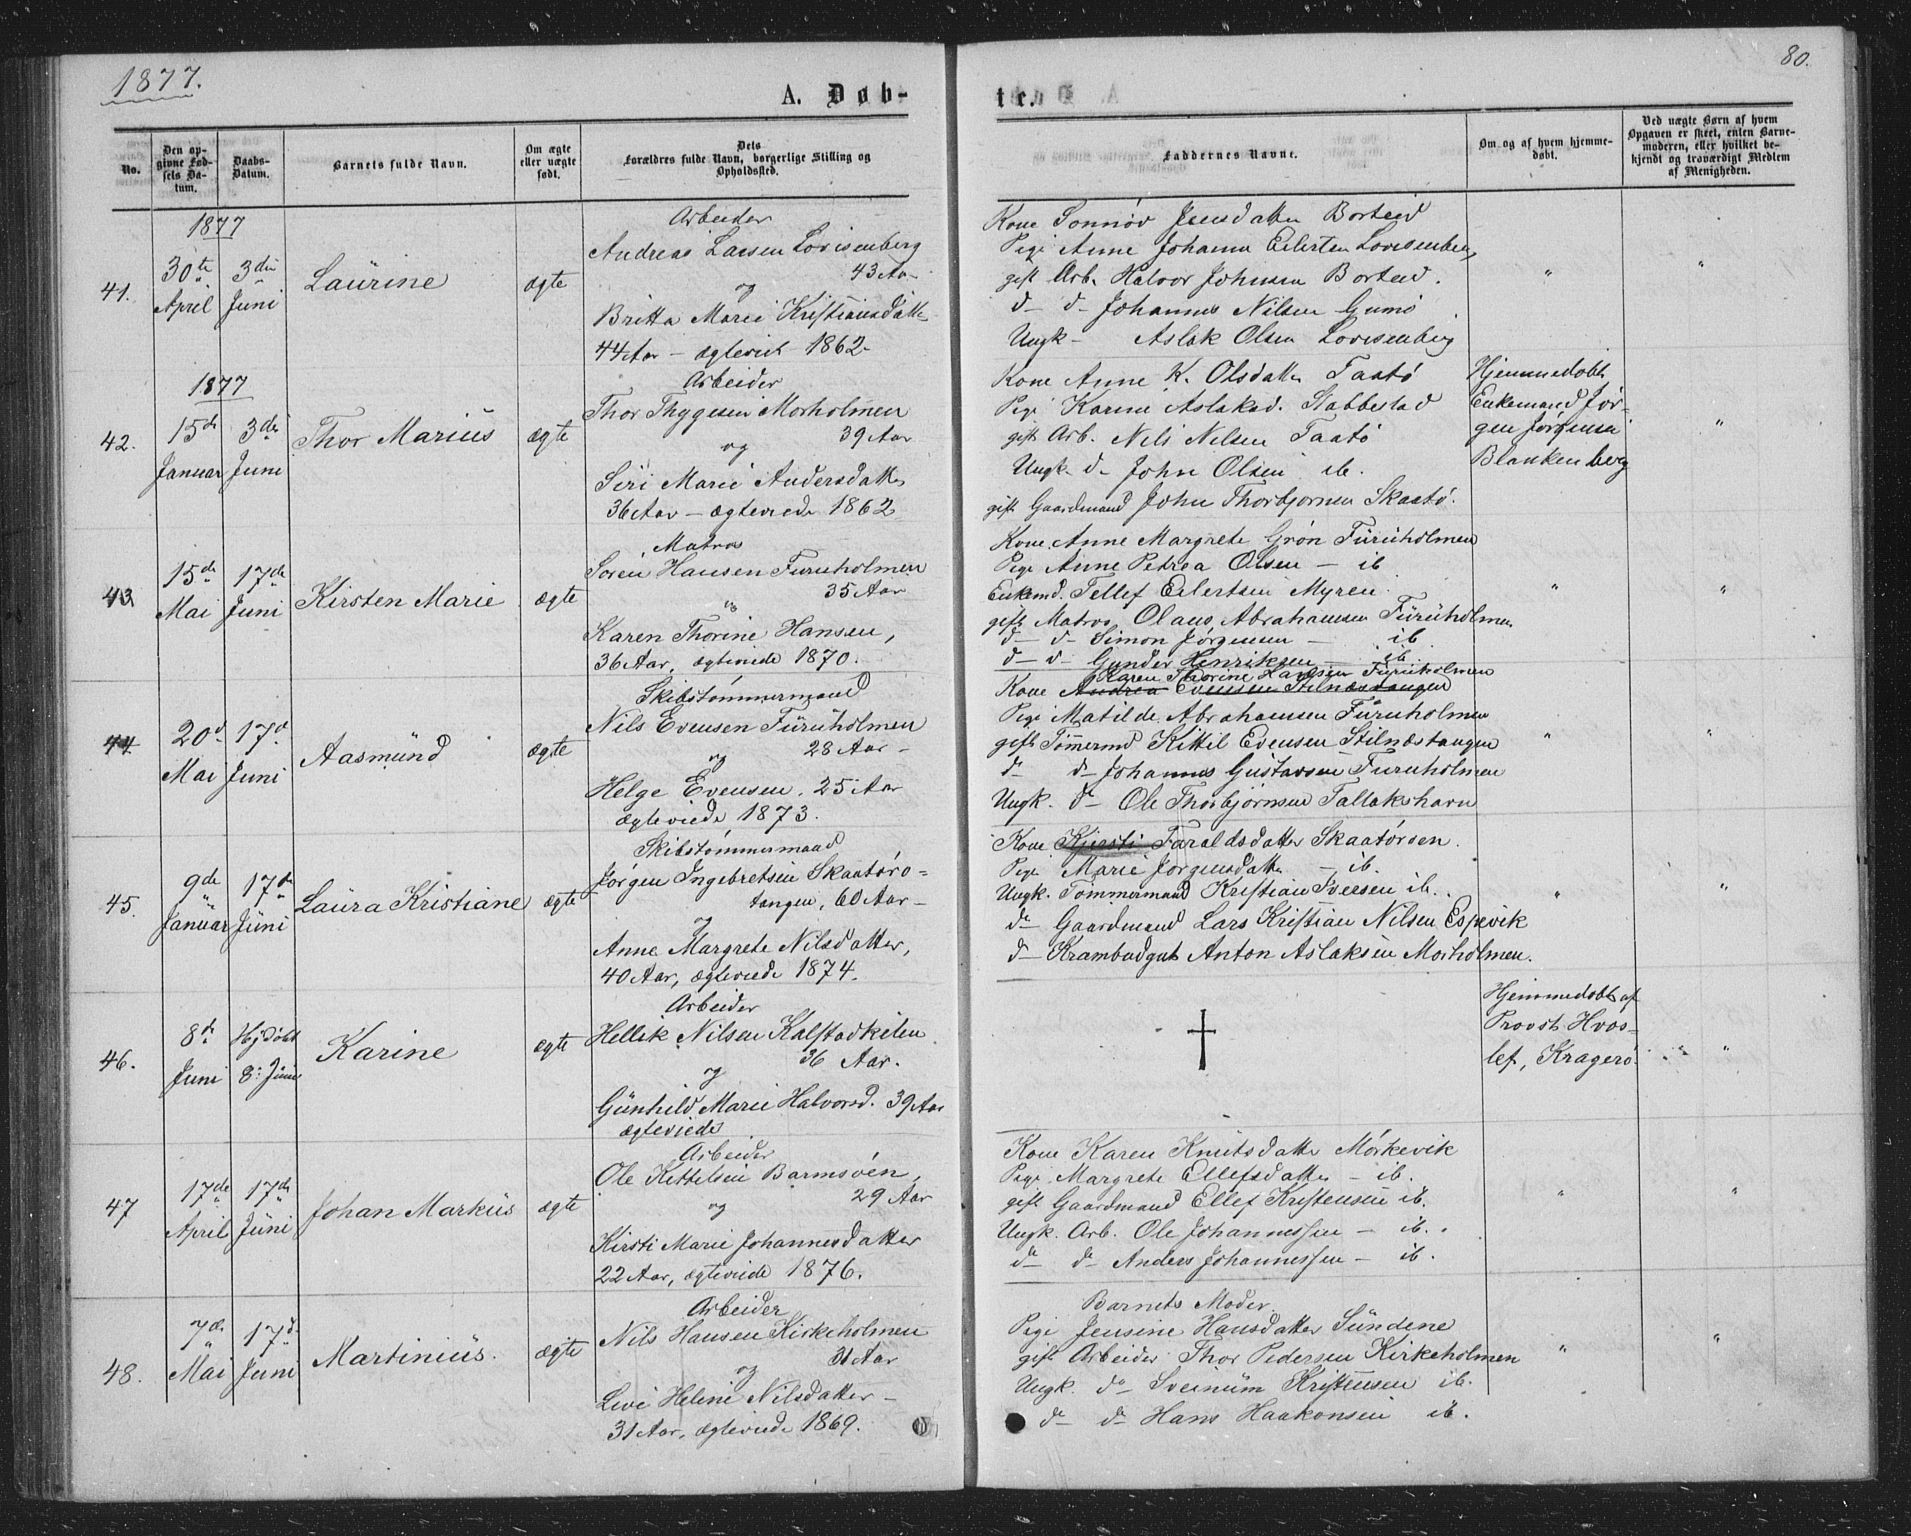 1877.
80.
A. Døb-
te.
No.
Den op-
givne Fød-
sels Da-
tum.
Daabs-
Datum.
Barnets fulde Navn.
Om ægte
eller uægte
født.
Dets
Forældres fulde Navn, borgerlige Stilling og
Opholdssted.
Faddernes Navne.
Om og af hvem hjemme-
døbt.
Ved uægte Børn af hvem
Opgaven er skeet, enten Barne-
moderen, eller hvilket be-
kjendt og troværdigt Medlem
af Menigheden.
1877
41.
30te
April
3die
Juni
Laurine
ægte
Arbeider
Andreas Larsen Lovisenberg
43 Aar
og
Britta Marie Kristiansdatter
44 Aar – ægteviet 1862
Kone Sonnöv Jensdatter Borteid
Pige Anne Johanne Eilertsen Lovisenberg
gift Arb. Halvor Johnsen Borteid.
d– d– Johannes Nilsen Gumö
Ungk – Aslak Olsen Lovisenberg
"
"
1877
42.
15de
Januar
3die
Juni
Thor Marius
ægte
Arbeider
Thor Thygesen Morholmen
39 Aar
og
Siri Marie Andersdatter
36 Aar – ægteviede 1862
Kone Anne K. Olsdatter Taatö
Pige Karine Aslaksd. Stabbestad
gift Arb. Nils Nilsen Taatö
Ungk. d– John Olsen ib.
gift Gaardmand John Thorbjørnsen Skaatö.
Hjemmedøbt
Enkemand Jör-
gen Jörgensen
Blankenberg
"
43
15de
Mai
17de
Juni
Kirsten Marie
ægte
Matros
Sören Hansen Furuholmen
35 Aar
og
Karen Thorine Hansen,
36 Aar, ægteviede 1870.
Kone Anne Margrete Grön Furuholmen
Pige Anne Petrea Olsen – ib
Enkemd. Tellef Eilertsen Myren
gift Matros Olaus Abrahamsen Furuholmen
d– d– Simon Jörgensen – ib
d– d– Gunder Henriksen – ib.
"
"
44
20d
Mai
17d
Juni
Aasmund
ægte
Skibstömmermand
Nils Evensen Furuholmen
28 Aar –
og
Helge Evensen, 25 Aar
ægteviede 1873.
Karen Thorine Hansen Furuholmen
Kone Andrea Evensen Stilnæstangen
Pige Matilde Abrahamsen Furuholmen
gift Tømmermd Kittil Evensen Stilnæstangen
d– d– Johannes Gustavsen Furuholmen
Ungk. d– Ole Thorbjörnsen Tallakshavn
"
"
45.
9de
Januar
17de
Juni
Laura Kristiane
ægte
Skibstömmermand
Jörgen Ingebretsen Skaatörö-
tangen, 60 Aar –
og
Anne Margrete Nilsdatter,
40 Aar, ægteviede 1874.
Kone Kjersti Taraldsdatter Skaatöröen.
Pige Marie Jörgensdatter – ib.
Ungk. Tömmermand Kristian Iversen ib.
d– Gaardmand Lars Kristian Nilsen Espevik
d– Krambodgut Anton Aslaksen Morholmen.
"
"
46.
8de
Juni
Hjdöbt
8: Juni
Karine
ægte
Arbeider
Hellik Nilsen Kalstadkilen
36 Aar.
og
Gunhild Marie Halvorsd. 39 Aar
ægteviede
†
Hjemmedøbt af
Provst Hvos-
lef, Kragerö.
"
"
47
17de
April
17de
Juni
Johan Markus
ægte
Arbeider
Ole Kettelsen Barmsöen,
29 Aar
og
Kirsti Marie Johannesdatter
22 Aar, ægteviede 1876.
Kone Karen Knutsdatter Mörkevik
Pige Margrete Ellefsdatter – ib.
gift Gaardmand Ellef Kristensen ib.
Ungk. Arb. Ole Johannessen – ib.
d– d– Anders Johannessen – ib.
"
"
48.
7de
Mai
17de
Juni
Martinius.
ægte
Arbeider
Nils Hansen Kirkeholmen
31 Aar
og
Live Helene Nilsdatter –
31 Aar, ægteviede 1869.
Barnets Moder.
Pige Jensine Hansdatter Sundene
gift Arbeider Thor Pedersen Kirkeholmen
Ungk. d– Sveinum Kristensen ib.
d– d– Hans Haakonsen ib.
"
"